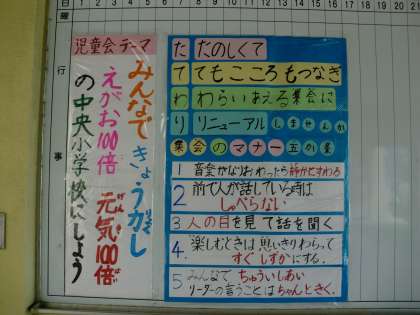 日 1 2 3 4 5 6 7 8 9 10 11 12 13 14 15 16 17 18 19 20 21
曜
行
事
児童会テーマ
みんなできょう力し
えがお100倍 元気100倍
の中央小学校にしよう
た たのしくて
て てもこころもつなぎ
わ わらいあえる集会に
り リニューアルしませんか
集会のマナー五か条
1 音楽がなりおわったら静かにすわる
2 前で人が話している時は
しゃべらない
3 人の目を見て話を聞く
4. 楽しむときは思いきりわらって
すぐしずかにする.
5 みんなでちゅういしあい
リーダーの言うことはちゃんときく.